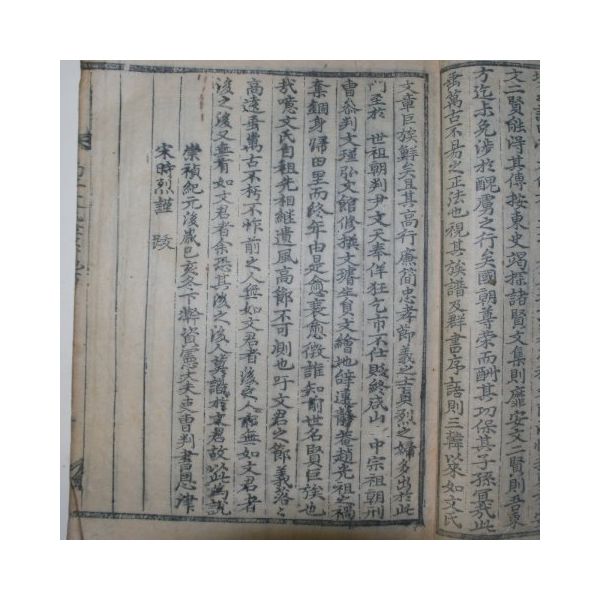 文二賢能得其傳按東史竭探諸賢文集則靡安文二賢則吾東
方迄未免涉於醜虜之行矣國朝尊榮而酬其功保其子孫宜哉此
垂萬古不易之正法也視其族譜及群書序語則三韓以來如文氏
文章巨族鮮矣且其高行廉簡忠孝節義之士貞烈之婦多出於此
門至於 世祖朝判尹文天奉佯狂乞市不仕賤終咸山 中宗祖朝刑
曹參判文瑾弘文館修撰文瓘生員文繪地辭還靜菴趙光祖之禍
棄錮身歸田里而終年由是愈衰愈微誰知前世名賢巨族也
我噫文氏自祖先相継遺風高節不可測也吁文君之節義落之
高遠垂萬古不朽不怍前之人無如文君者後之人無如文君者
後之後又無有如文君者余恐其後之後人莫識於文君故以此為説
崇禎紀元後歲己亥冬下弊資憲大夫吏曹判書恩津
宋時烈謹 跋